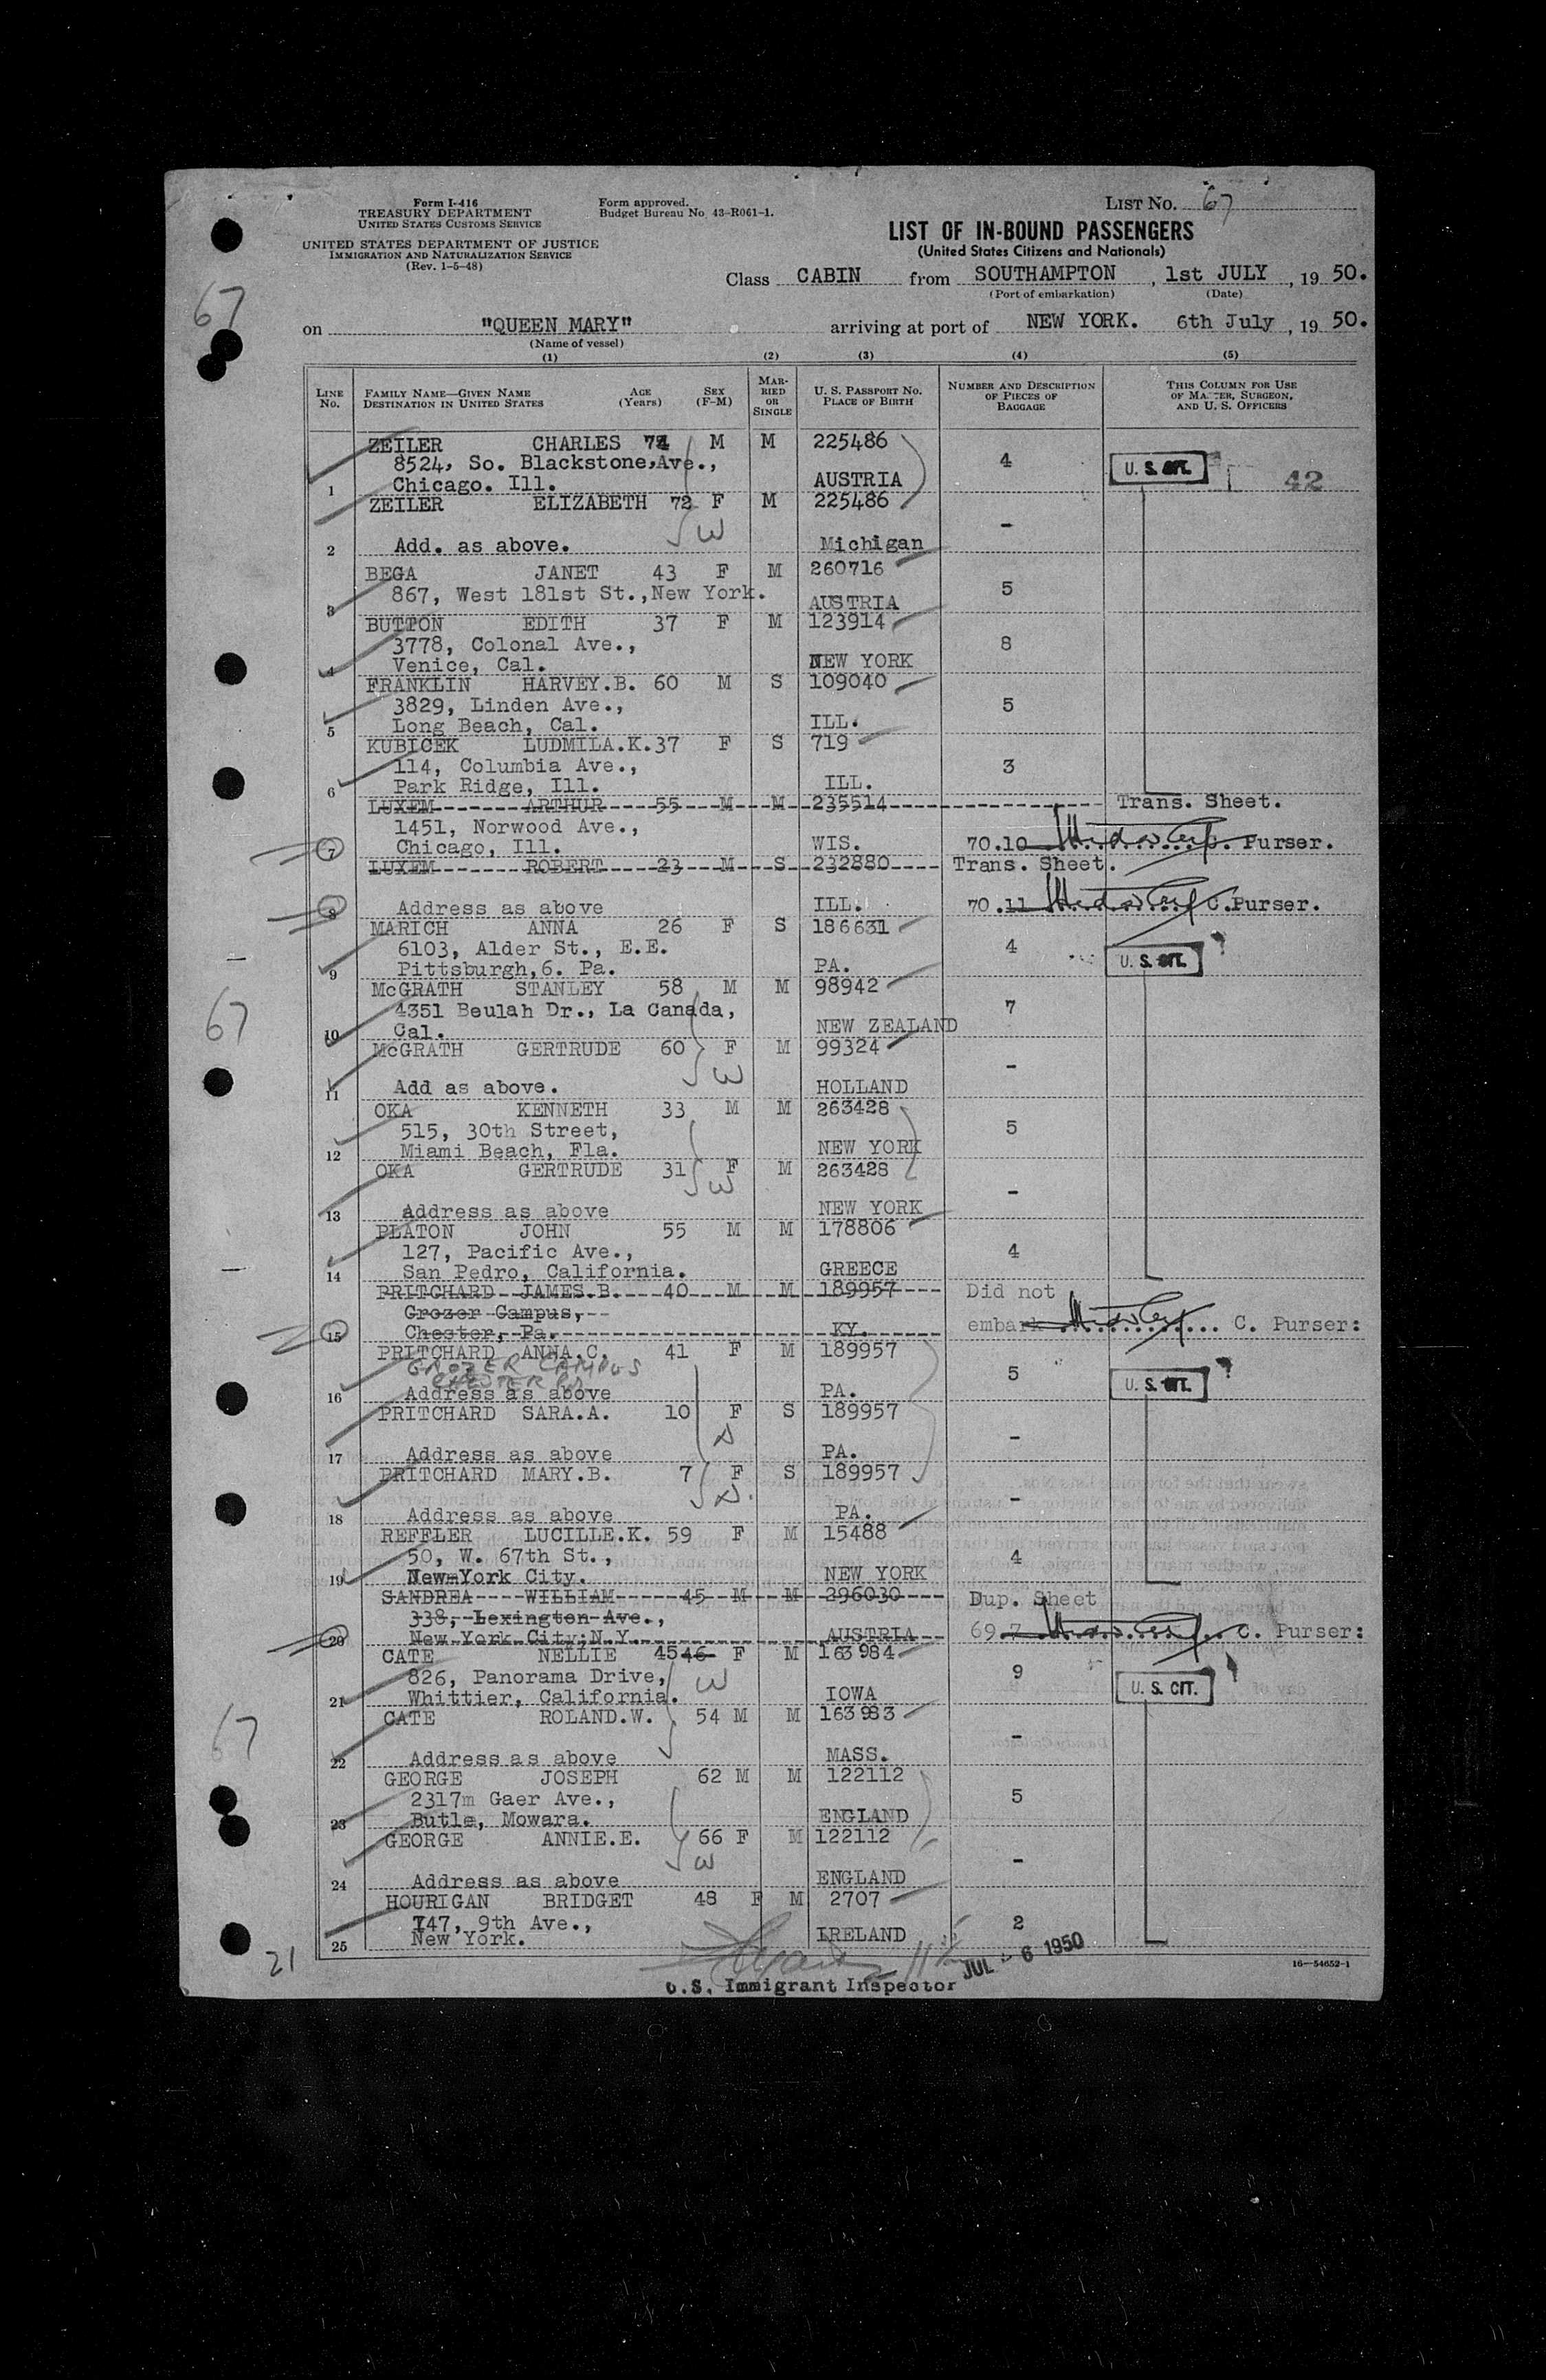 Form I-416
TREASURY DEPARTMENT
UNITED STATES CUSTOMS SERVICE
UNITED STATES DEPARTMENT OF JUSTICE
IMMIGRATION AND NATURALIZATION SERVICE
(Rev. 1-5-48)
Form approved.
Budget Bureau No. 43-R061-1.
LIST No. 67
LIST OF IN-BOUND PASSENGERS
(United States Citizens and Nationals)
Class CABIN from SOUTHAMPTON, 1st JULY, 19 50.
(Port of embarkation) (Date)
67
on "QUEEN MARY" arriving at port of NEW YORK. 6th July, 19 50.
(Name of vessel)
(1) (2) (3) (4) (5)
LINE No. FAMILY NAME—GIVEN NAME DESTINATION IN UNITED STATES AGE (Years) SEX (F-M) MARRIED OR SINGLE U. S. PASSPORT No. PLACE OF BIRTH NUMBER AND DESCRIPTION OF PIECES OF BAGGAGE THIS COLUMN FOR USE OF MASTER, SURGEON, AND U. S. OFFICERS
ZEILER CHARLES 74 M M 225486
8524, So. Blackstone,Ave., 4 U. S. CIT. 42
1 Chicago. Ill. AUSTRIA
ZEILER ELIZABETH 72 F M 225486
W -
2 Add. as above. Michigan
BEGA JANET 43 F M 260716
867, West 181st St.,New York. 5
3 AUSTRIA
BUTTON EDITH 37 F M 123914
3778, Colonal Ave., 8
4 Venice, Cal. NEW YORK
FRANKLIN HARVEY.B. 60 M S 109040
3829, Linden Ave., 5
5 Long Beach, Cal. ILL.
KUBICEK LUDMILA.K. 37 F S 719
114, Columbia Ave., 3
6 Park Ridge, Ill. ILL.
LUXEM ARTHUR 55 M M 235514 Trans. Sheet.
1451, Norwood Ave.,
7 Chicago, Ill. WIS. 70.10 C. Purser.
LUXEM ROBERT 23 M S 232880 Trans. Sheet.
8 Address as above ILL. 70.11 C.Purser.
MARICH ANNA 26 F S 186631
6103, Alder St., E.E. 4 U. S. CIT.
9 Pittsburgh,6. Pa. PA.
McGRATH STANLEY 58 M M 98942
4351 Beulah Dr., La Canada, 7
67
10 Cal. NEW ZEALAND
McGRATH GERTRUDE 60 F M 99324
W -
11 Add as above. HOLLAND
OKA KENNETH 33 M M 263428
515, 30th Street, 5
12 Miami Beach, Fla. NEW YORK
OKA GERTRUDE 31 F M 263428
W -
13 Address as above NEW YORK
PLATON JOHN 55 M M 178806
127, Pacific Ave., 4
14 San Pedro, California. GREECE
PRITCHARD JAMES.B. 40 M M 189957 Did not
Grozer Campus,
15 Chester, Pa. KY. embark C. Purser:
PRITCHARD ANNA.C. 41 F M 189957
CROZER CAMPUS
CHESTER PA. 5 U. S. CIT.
16 Address as above PA.
PRITCHARD SARA.A. 10 F S 189957
-
17 Address as above PA.
PRITCHARD MARY.B. 7 F S 189957
-
18 Address as above PA.
REFFLER LUCILLE.K. 59 F M 15488
50, W. 67th St., 4
19 New York City. NEW YORK
SANDREA WILLIAM 45 M M 296030 Dup. Sheet
338, Lexington Ave.,
20 New York City; N.Y. AUSTRIA 69.7 C. Purser:
CATE NELLIE 45 46 F M 163984
826, Panorama Drive, W 9 U. S. CIT.
21 Whittier, California. IOWA
CATE ROLAND.W. 54 M M 163983
67 -
22 Address as above MASS.
GEORGE JOSEPH 62 M M 122112
2317m Gaer Ave., 5
23 Butle, Mowara. ENGLAND
GEORGE ANNIE.E. 66 F M 122112
W -
24 Address as above ENGLAND
HOURIGAN BRIDGET 48 F M 2707
747, 9th Ave., 2
25 New York. IRELAND
21
JUL - 6 1950
16—54652-1
U.S. Immigrant Inspector